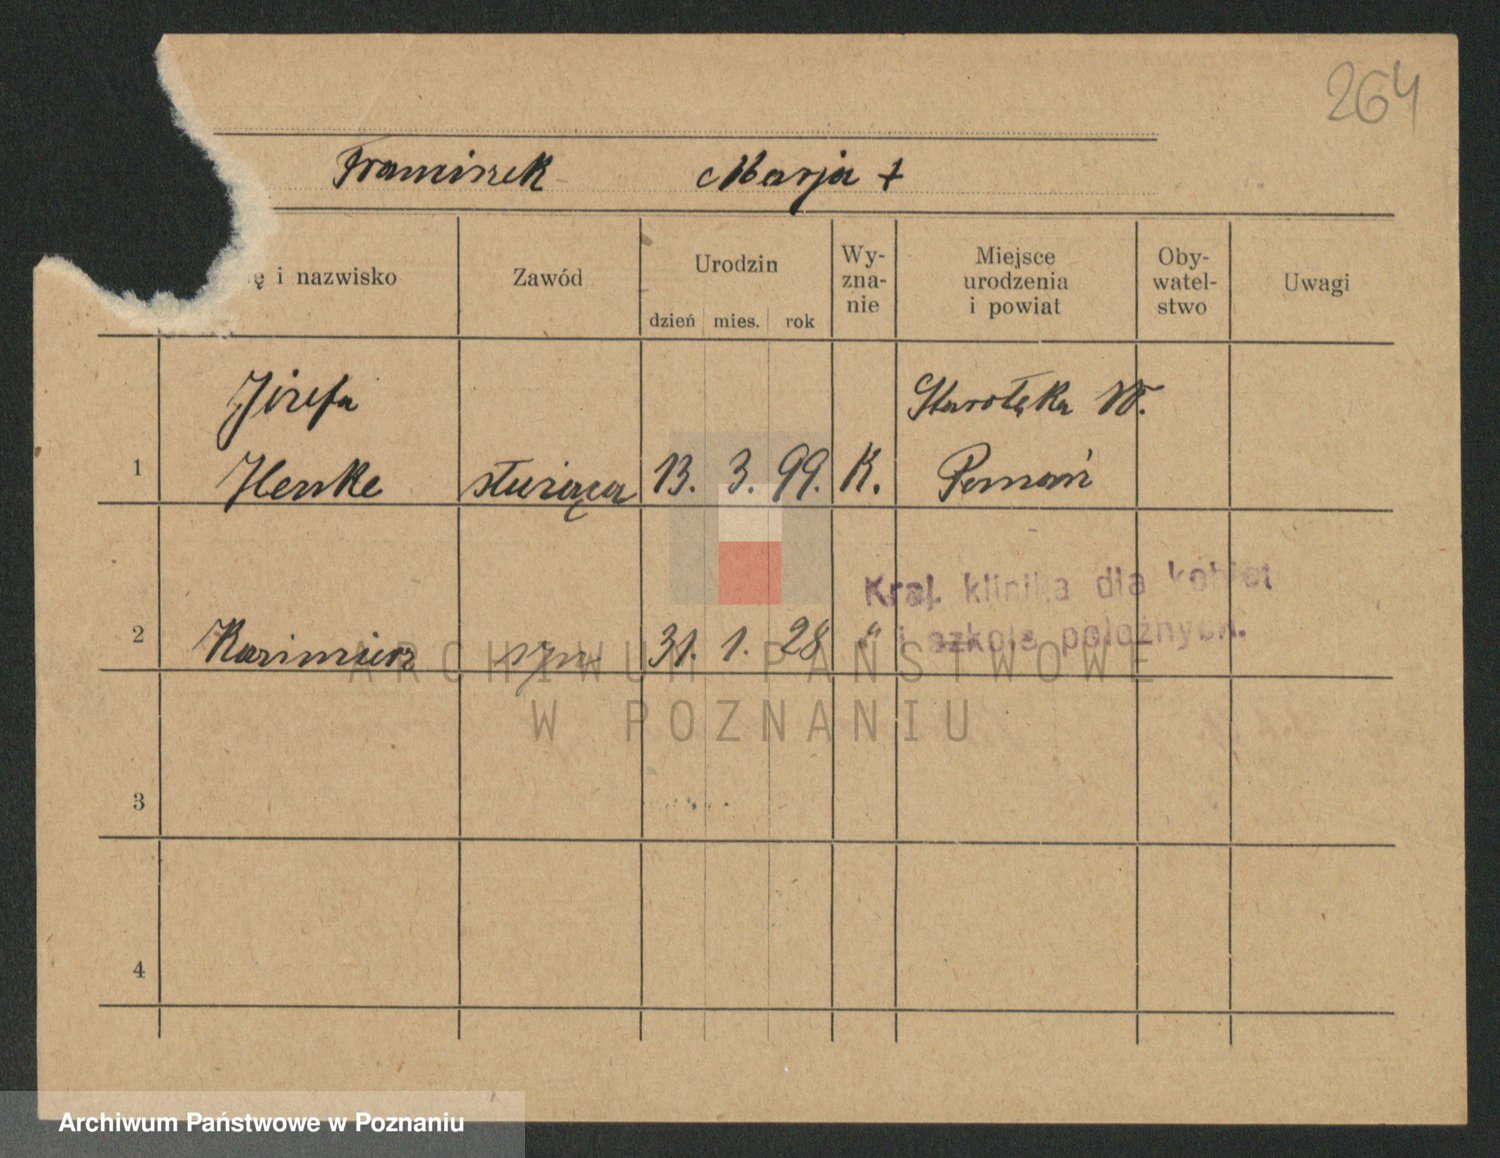 264
Franciszek Marja +
ę i nazwisko
Zawód
Urodzin
dzień mies. rok
Wy-
zna-
nie
Miejsce
urodzenia
i powiat
Oby-
watel-
stwo
Uwagi
Józefa Starołęka W.
1 Henke służąca 13. 3. 99. K. Poznań
Kraj. klinika dla kobiet
i szkoła położnych.
2 Kazimierz syn 31. 1. 28 "
ARCHIWUM PAŃSTWOWE
W POZNANIU
3
4
Archiwum Państwowe w Poznaniu